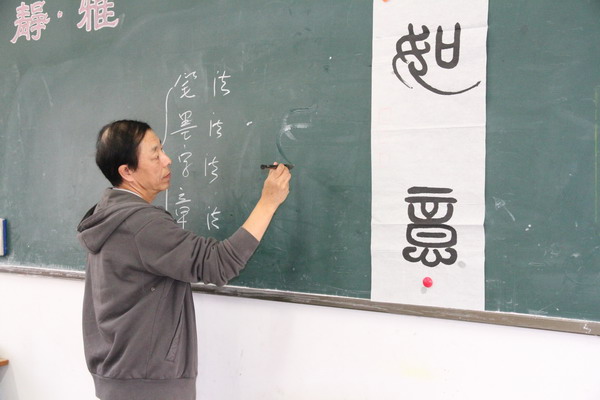 靜·雅
笔法
墨法
字法
章法
如
意